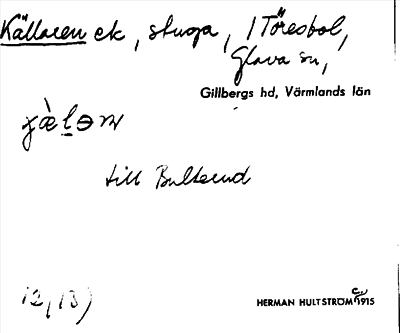 Källaren ek, stuga, 1 Töresbol,
Glava sn,
Gillbergs hd, Värmlands län
till Bulserud
12, 13)
HERMAN HULTSTRÖM 1915